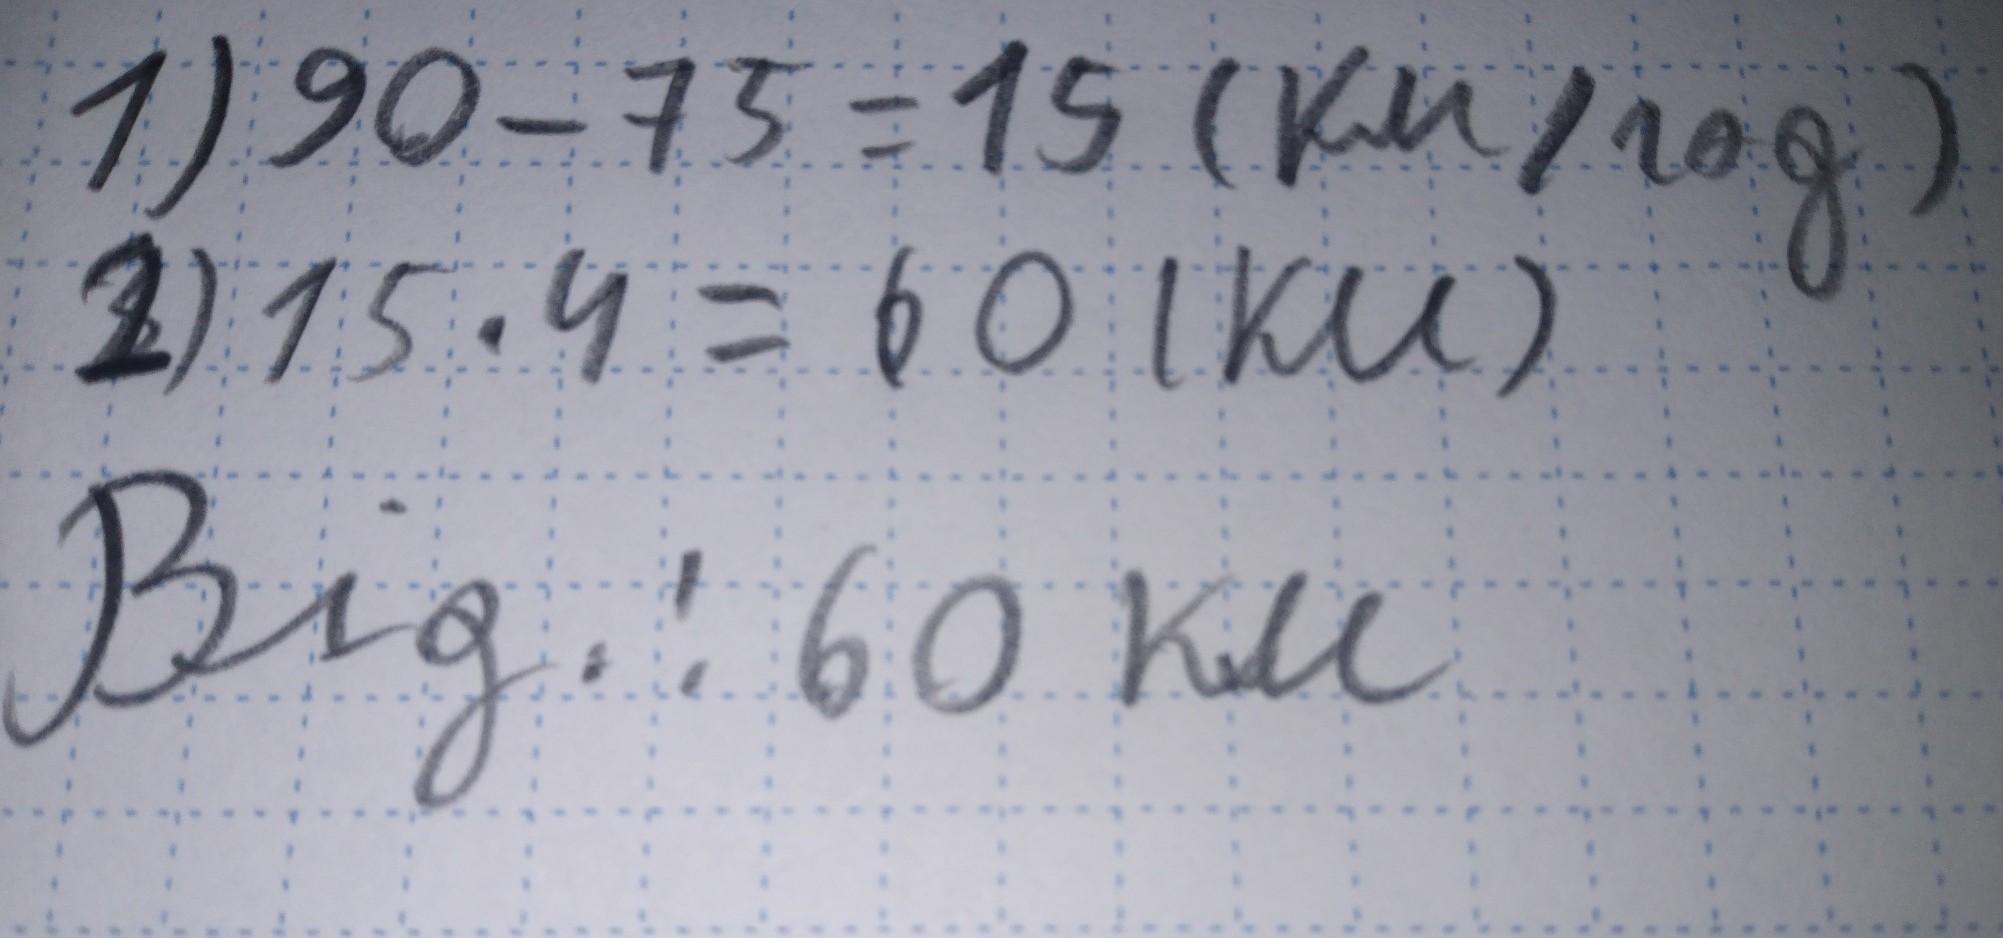 1) 90 - 75 = 15 (км/год)
2) 15 · 4 = 60 (км)
Від.: 60 км